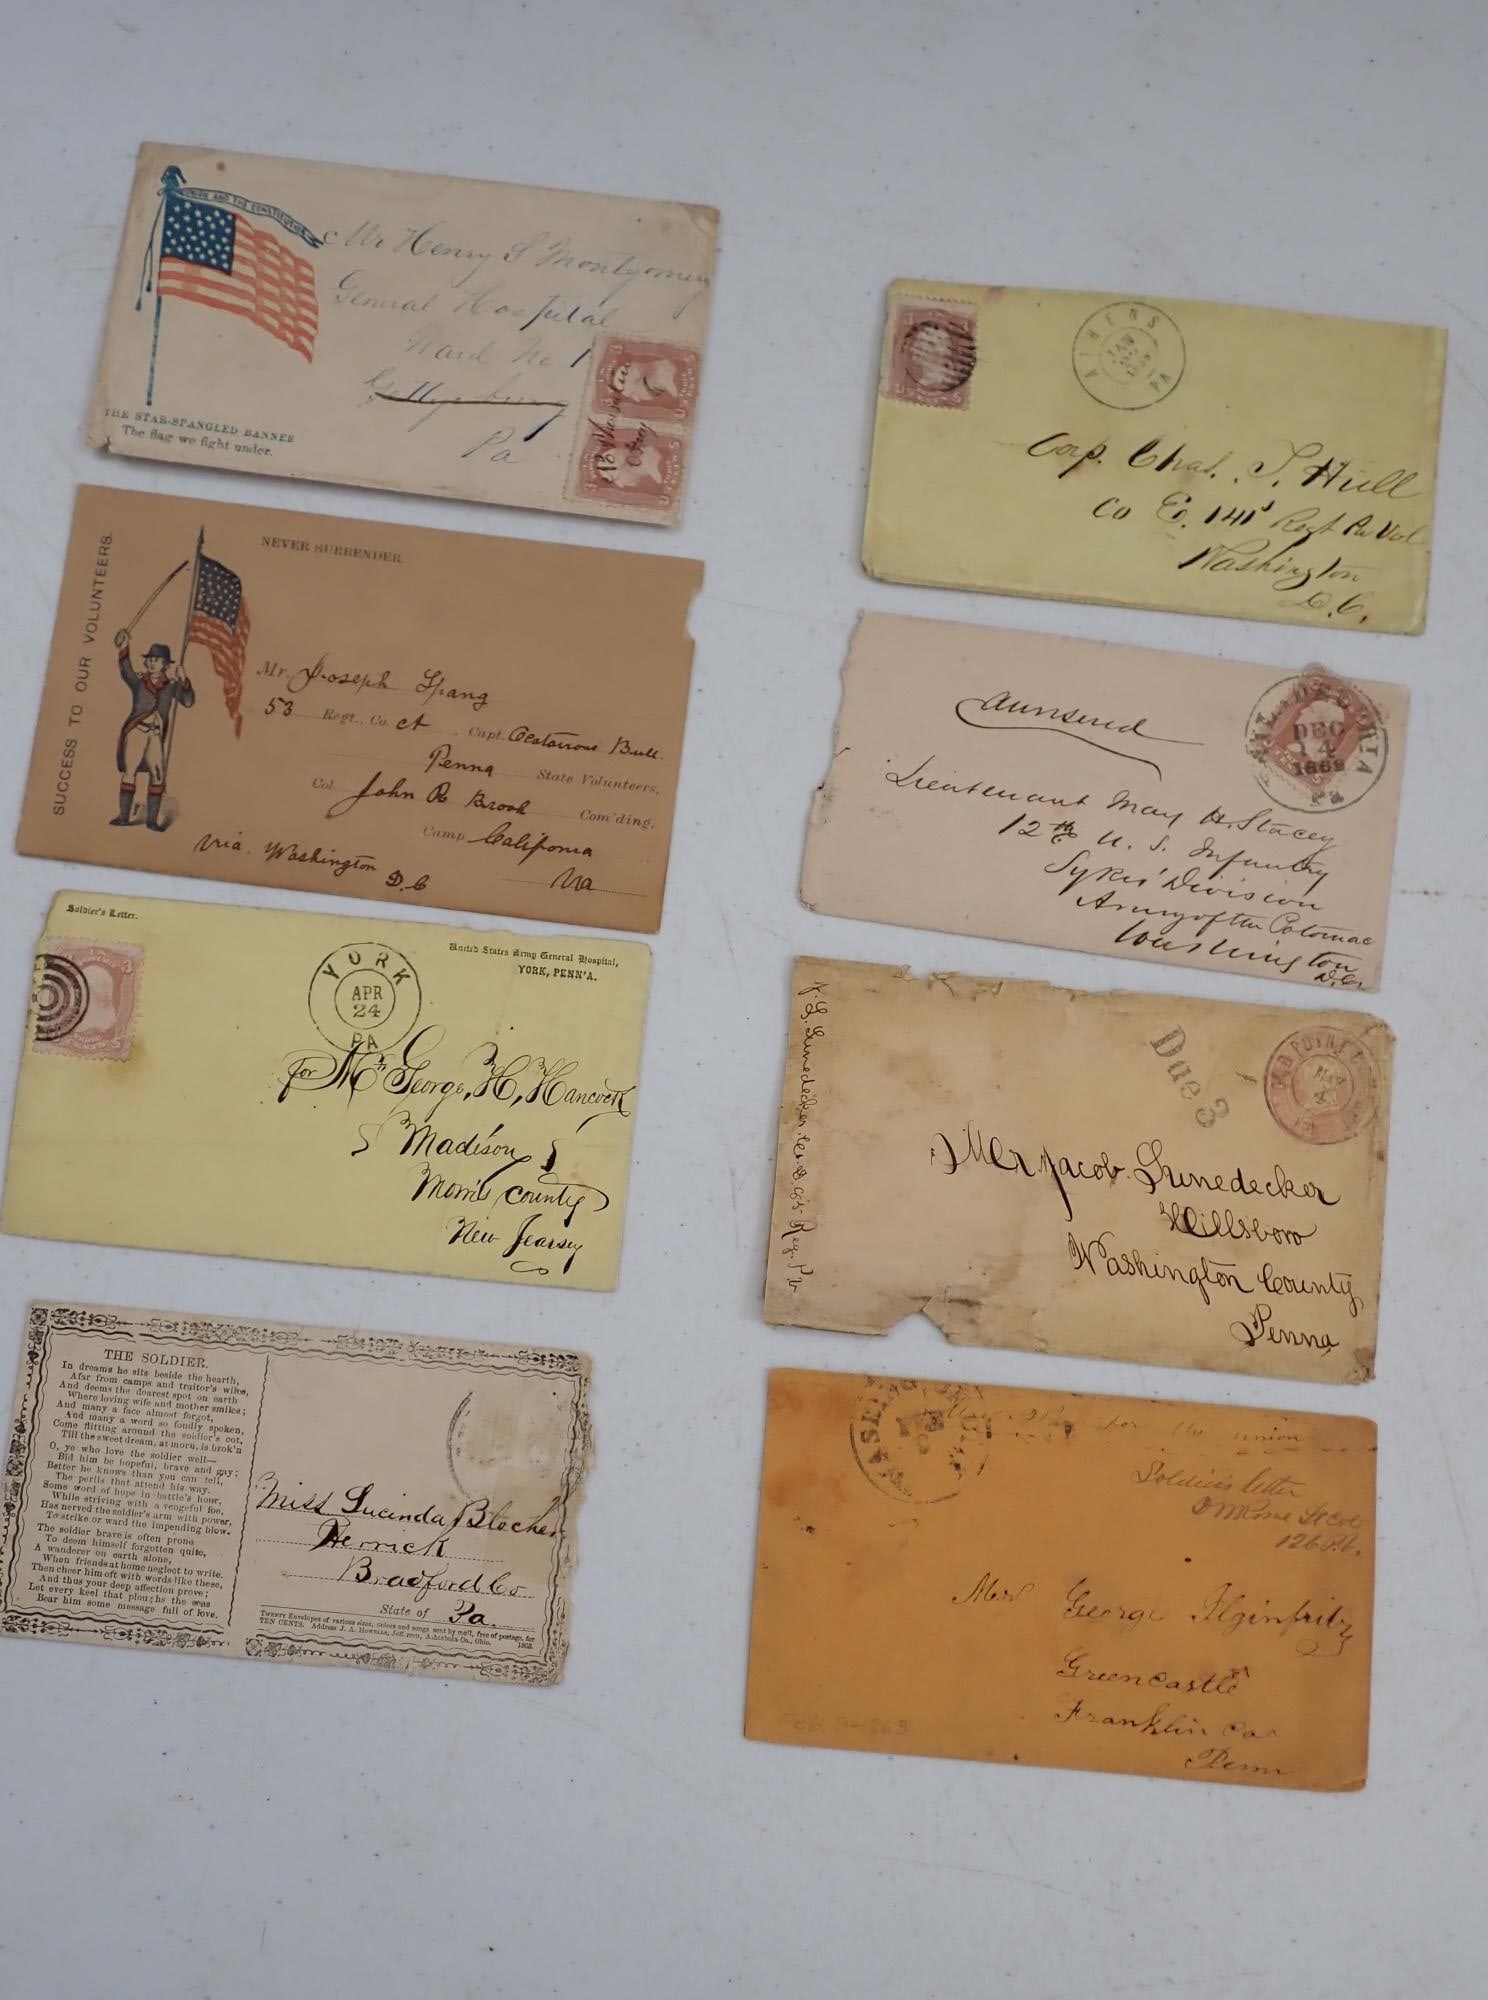 UNION AND THE CONSTITUTION
Mr Henry S Montgomery
General Hospital
Ward No 1
Gettysburg
Pa
THE STAR-SPANGLED BANNER
The flag we fight under.
SUCCESS TO OUR VOLUNTEERS.
NEVER SURRENDER.
Mr. Joseph Spang
53 Regt., Co. A, Capt. Bull
Penna State Volunteers,
Col. John R Brook Com'ding,
Camp California
Via Washington Va
D.C
Soldier's Letter.
United States Army General Hospital,
YORK, PENN'A.
YORK
APR
24
PA
for Mr George, H, Hancock
Madison
Morris County
New Jearsey
THE SOLDIER.
In dreams he sits beside the hearth,
Afar from camps and traitor's wiles,
And deems the dearest spot on earth
Where loving wife and mother smiles;
And many a face almost forgot,
And many a word so fondly spoken,
Come flitting around the soldier's cot,
Till the sweet dream, at morn, is brok'n
O, ye who love the soldier well—
Bid him be hopeful, brave and gay;
Better he knows than you can tell,
The perils that attend his way.
Some word of hope in battle's hour,
While striving with a vengeful foe,
Has nerved the soldier's arm with power,
To strike or ward the impending blow.
The soldier brave is often prone
To deem himself forgotten quite,
A wanderer on earth alone,
When friends at home neglect to write.
Then cheer him oft with words like these,
And thus your deep affection prove;
Let every keel that ploughs the seas
Bear him some message full of love.
Miss Lucinda Blocher
Herrick
Bradford Co
State of Pa.
TWENTY Envelopes of various sizes, colors and songs sent by mail, free of postage, for
TEN CENTS. Address J. A. HOWELLS, Jefferson, Ashtabula Co., Ohio. 1863.
ATHENS
JAN
PA
Corp. Chas. T. Hull
Co E. 141st Regt Pa Vol
Washington
D.C.
PHILADELPHIA
DEC
14
1862
Pa
Lieutenant May H. Stacey
12th U. S. Infantry
Sykes' Division
Army of the Potomac
Washington
D.C.
Due 3
OLD POINT COMFORT
MAY
Mr Jacob Lunedecker
Hillsboro
Washington County
Penna
WASHINGTON
FEB
the union
Soldiers letter
126 P.V.
George Ilginfritz
Greencastle
Franklin Co
Penn
Feb. 9-1863